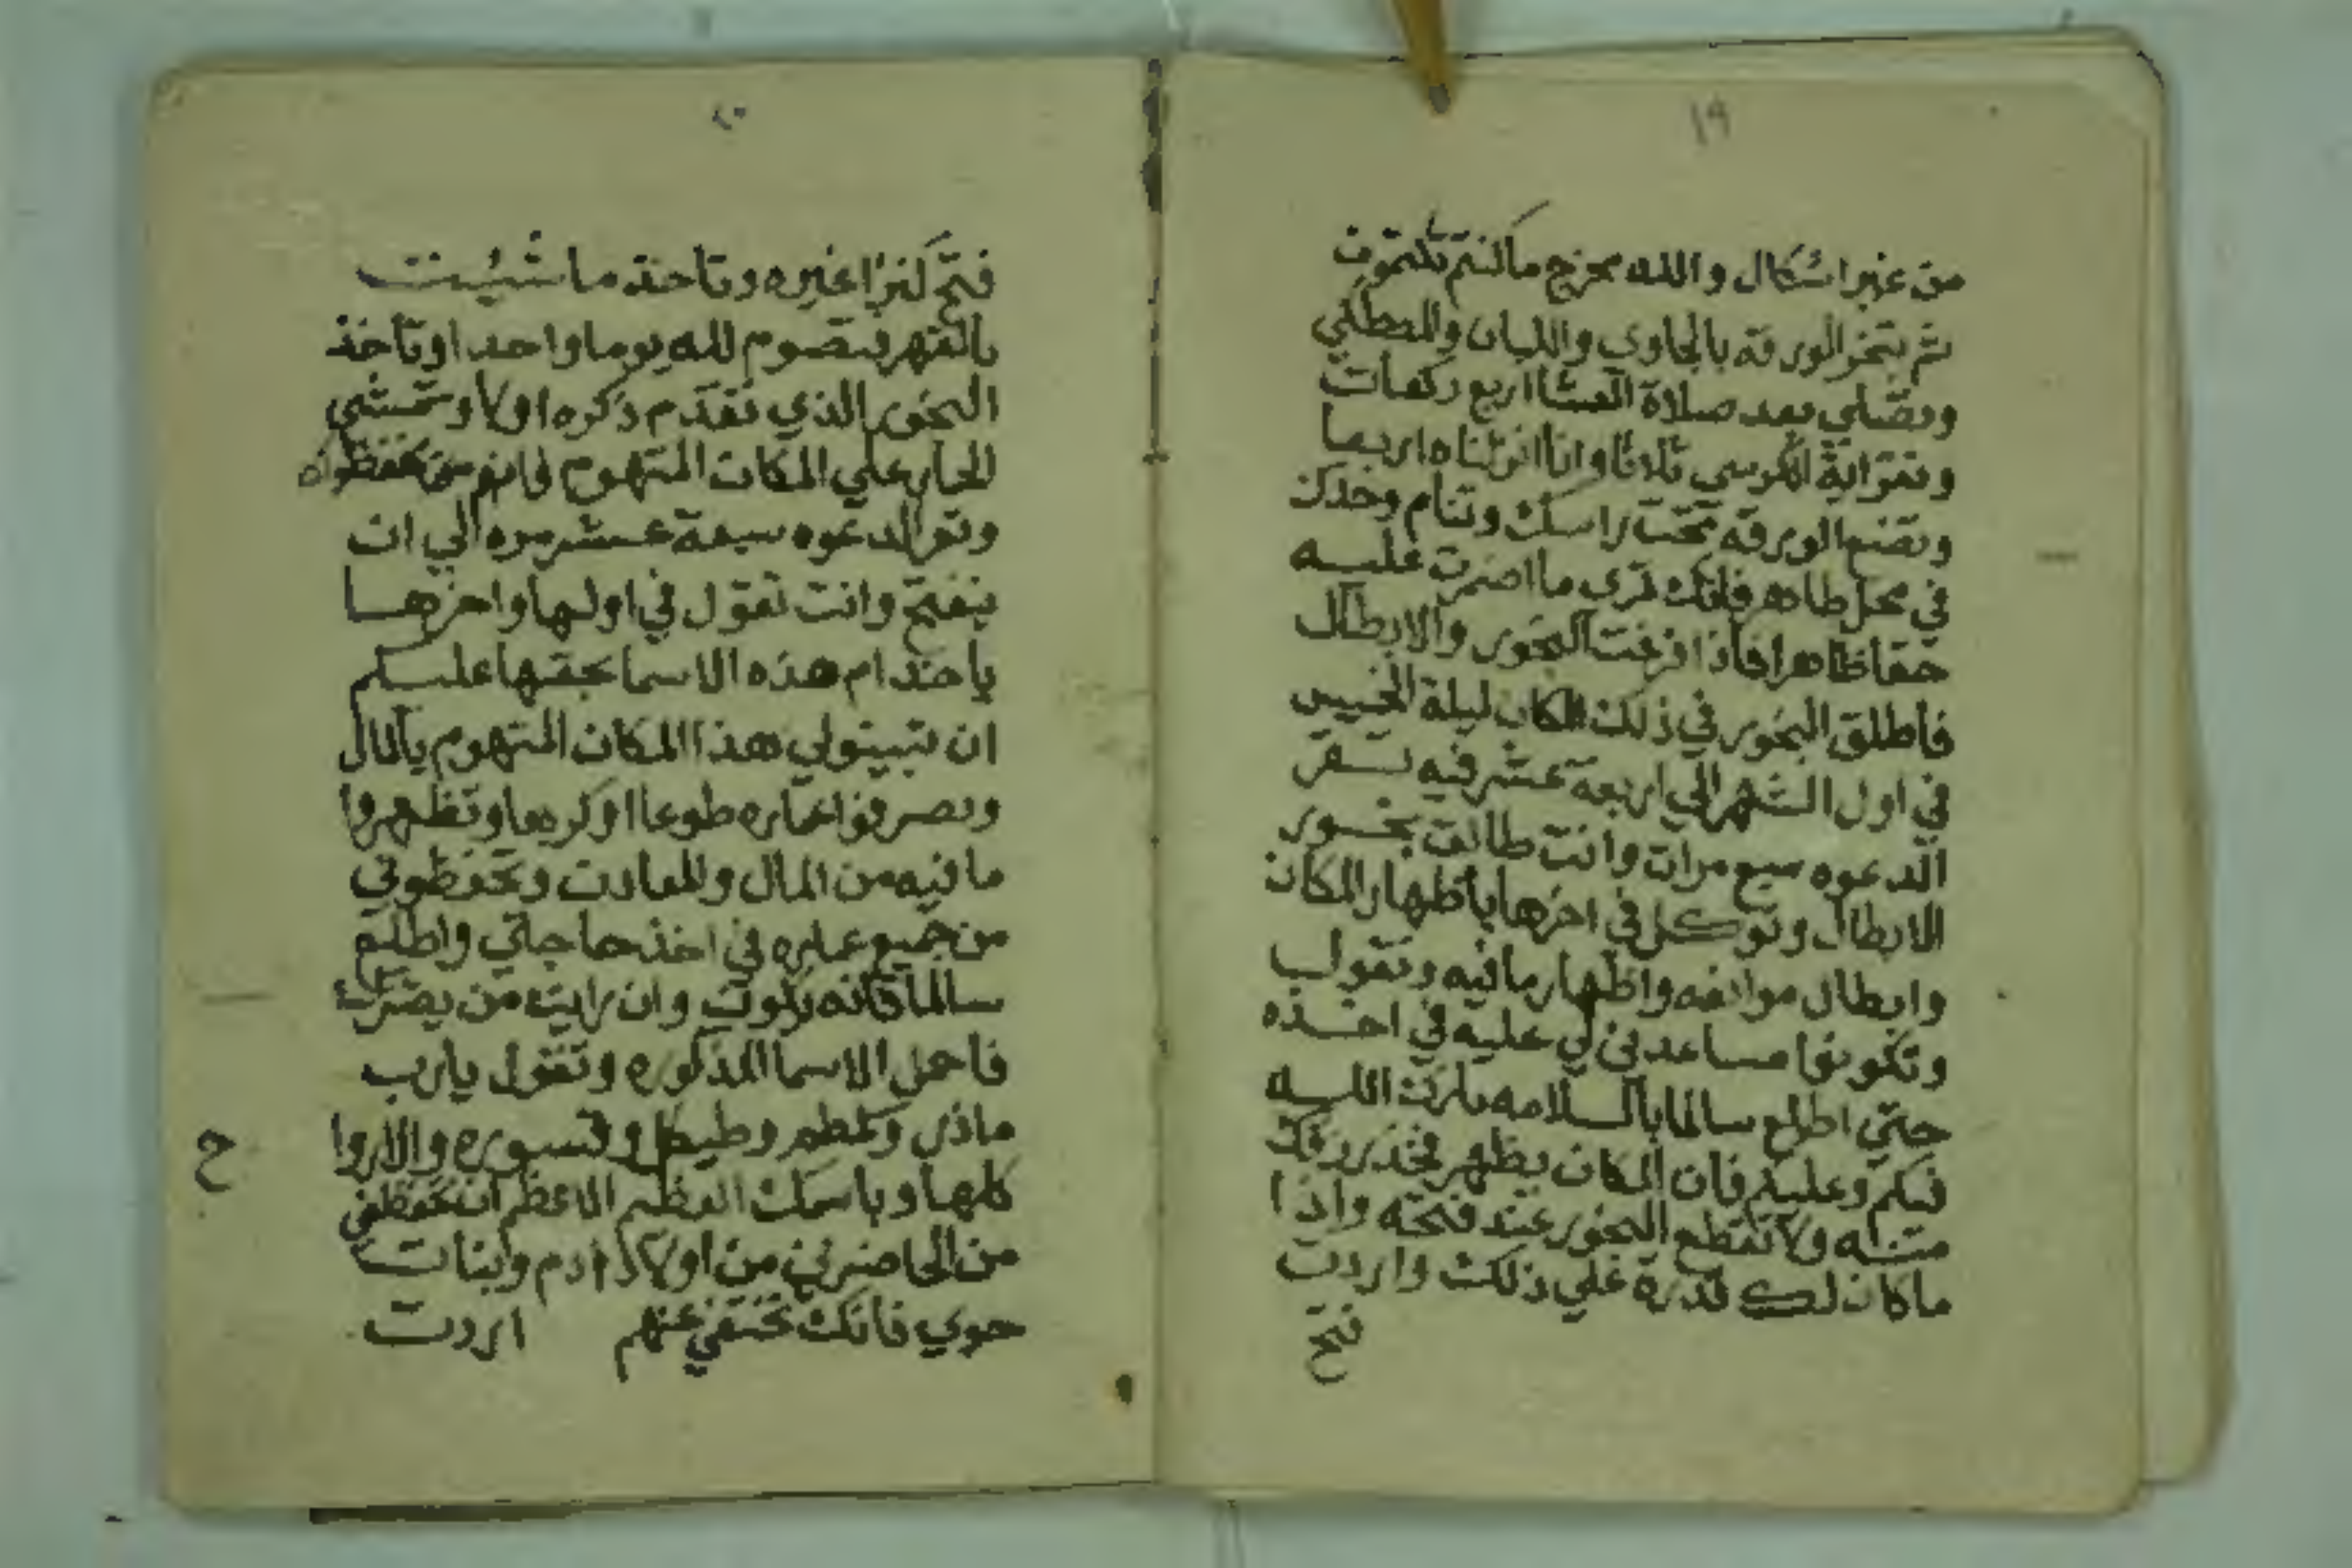 ١٩
من غير اشكال والله مخرج ما كنتم تكتمون
ثم تبخر الورقه بالجاوي واللبان والمصطكي
وتصلي بعد صلاة العشا اربع ركعات
وتقرا اية الكرسي ثلاثا وانا انزلناه اربعا
وتضع الورقه تحت راسك وتنام وحدك
في محل طاهر فانك تري ما اضمرت عليه
حقا ظاهرا فاذا فرغت البخور والابطال
فاطلق البخور في ذلك المكان ليلة الخميس
في اول الشهر الي اربعة عشر فيه تقر
الدعوه سبع مرات وانت طالق بخور
الابطال وتوكل في اخرها باظهار المكان
وابطال موانعه واظهار ما فيه وتقول
وتكونوا مساعدين لي عليه في اخذه
حتي اطلع سالما بالسلامه بارك الله
فيكم وعليكم فان المكان يظهر فخذ رزقك
منه ولا تقطع البخور عند فتحه واذا
ما كان لك قدرة علي ذلك واردت
فتح
٢٠
فتح كنزا غيره وتاخذ ما شيئت
بالقهر فتصوم لله يوما واحدا وتاخذ
البخور الذي تقدم ذكره اولا وتمشي
الحار علي المكان المتهوم فانهم
وتقرا الدعوه سبعة عشر مره الي ان
ينفتح وانت تقول في اولها واخرها
يا خدام هذه الاسما بحقها عليكم
ان تبينولي هذا المكان المتهوم بالمال
وتصرفوا عماره طوعا او كرها وتظهروا
ما فيه من المال والمعادن وتحفظوني
من جميع عماره في اخذ حاجتي واطلع
سالما فانه يكون وان رايت من يضرك
فاحمل الاسما المذكوره وتقول يارب
مازر وكمطم وطيكل وقسوره والاروا
ح
كلها وباسمك العظيم الاعظم ان تحفظني
من الحاضرين من اولاد ادم وبنات
حوي فانك تختفي عنهم اردت